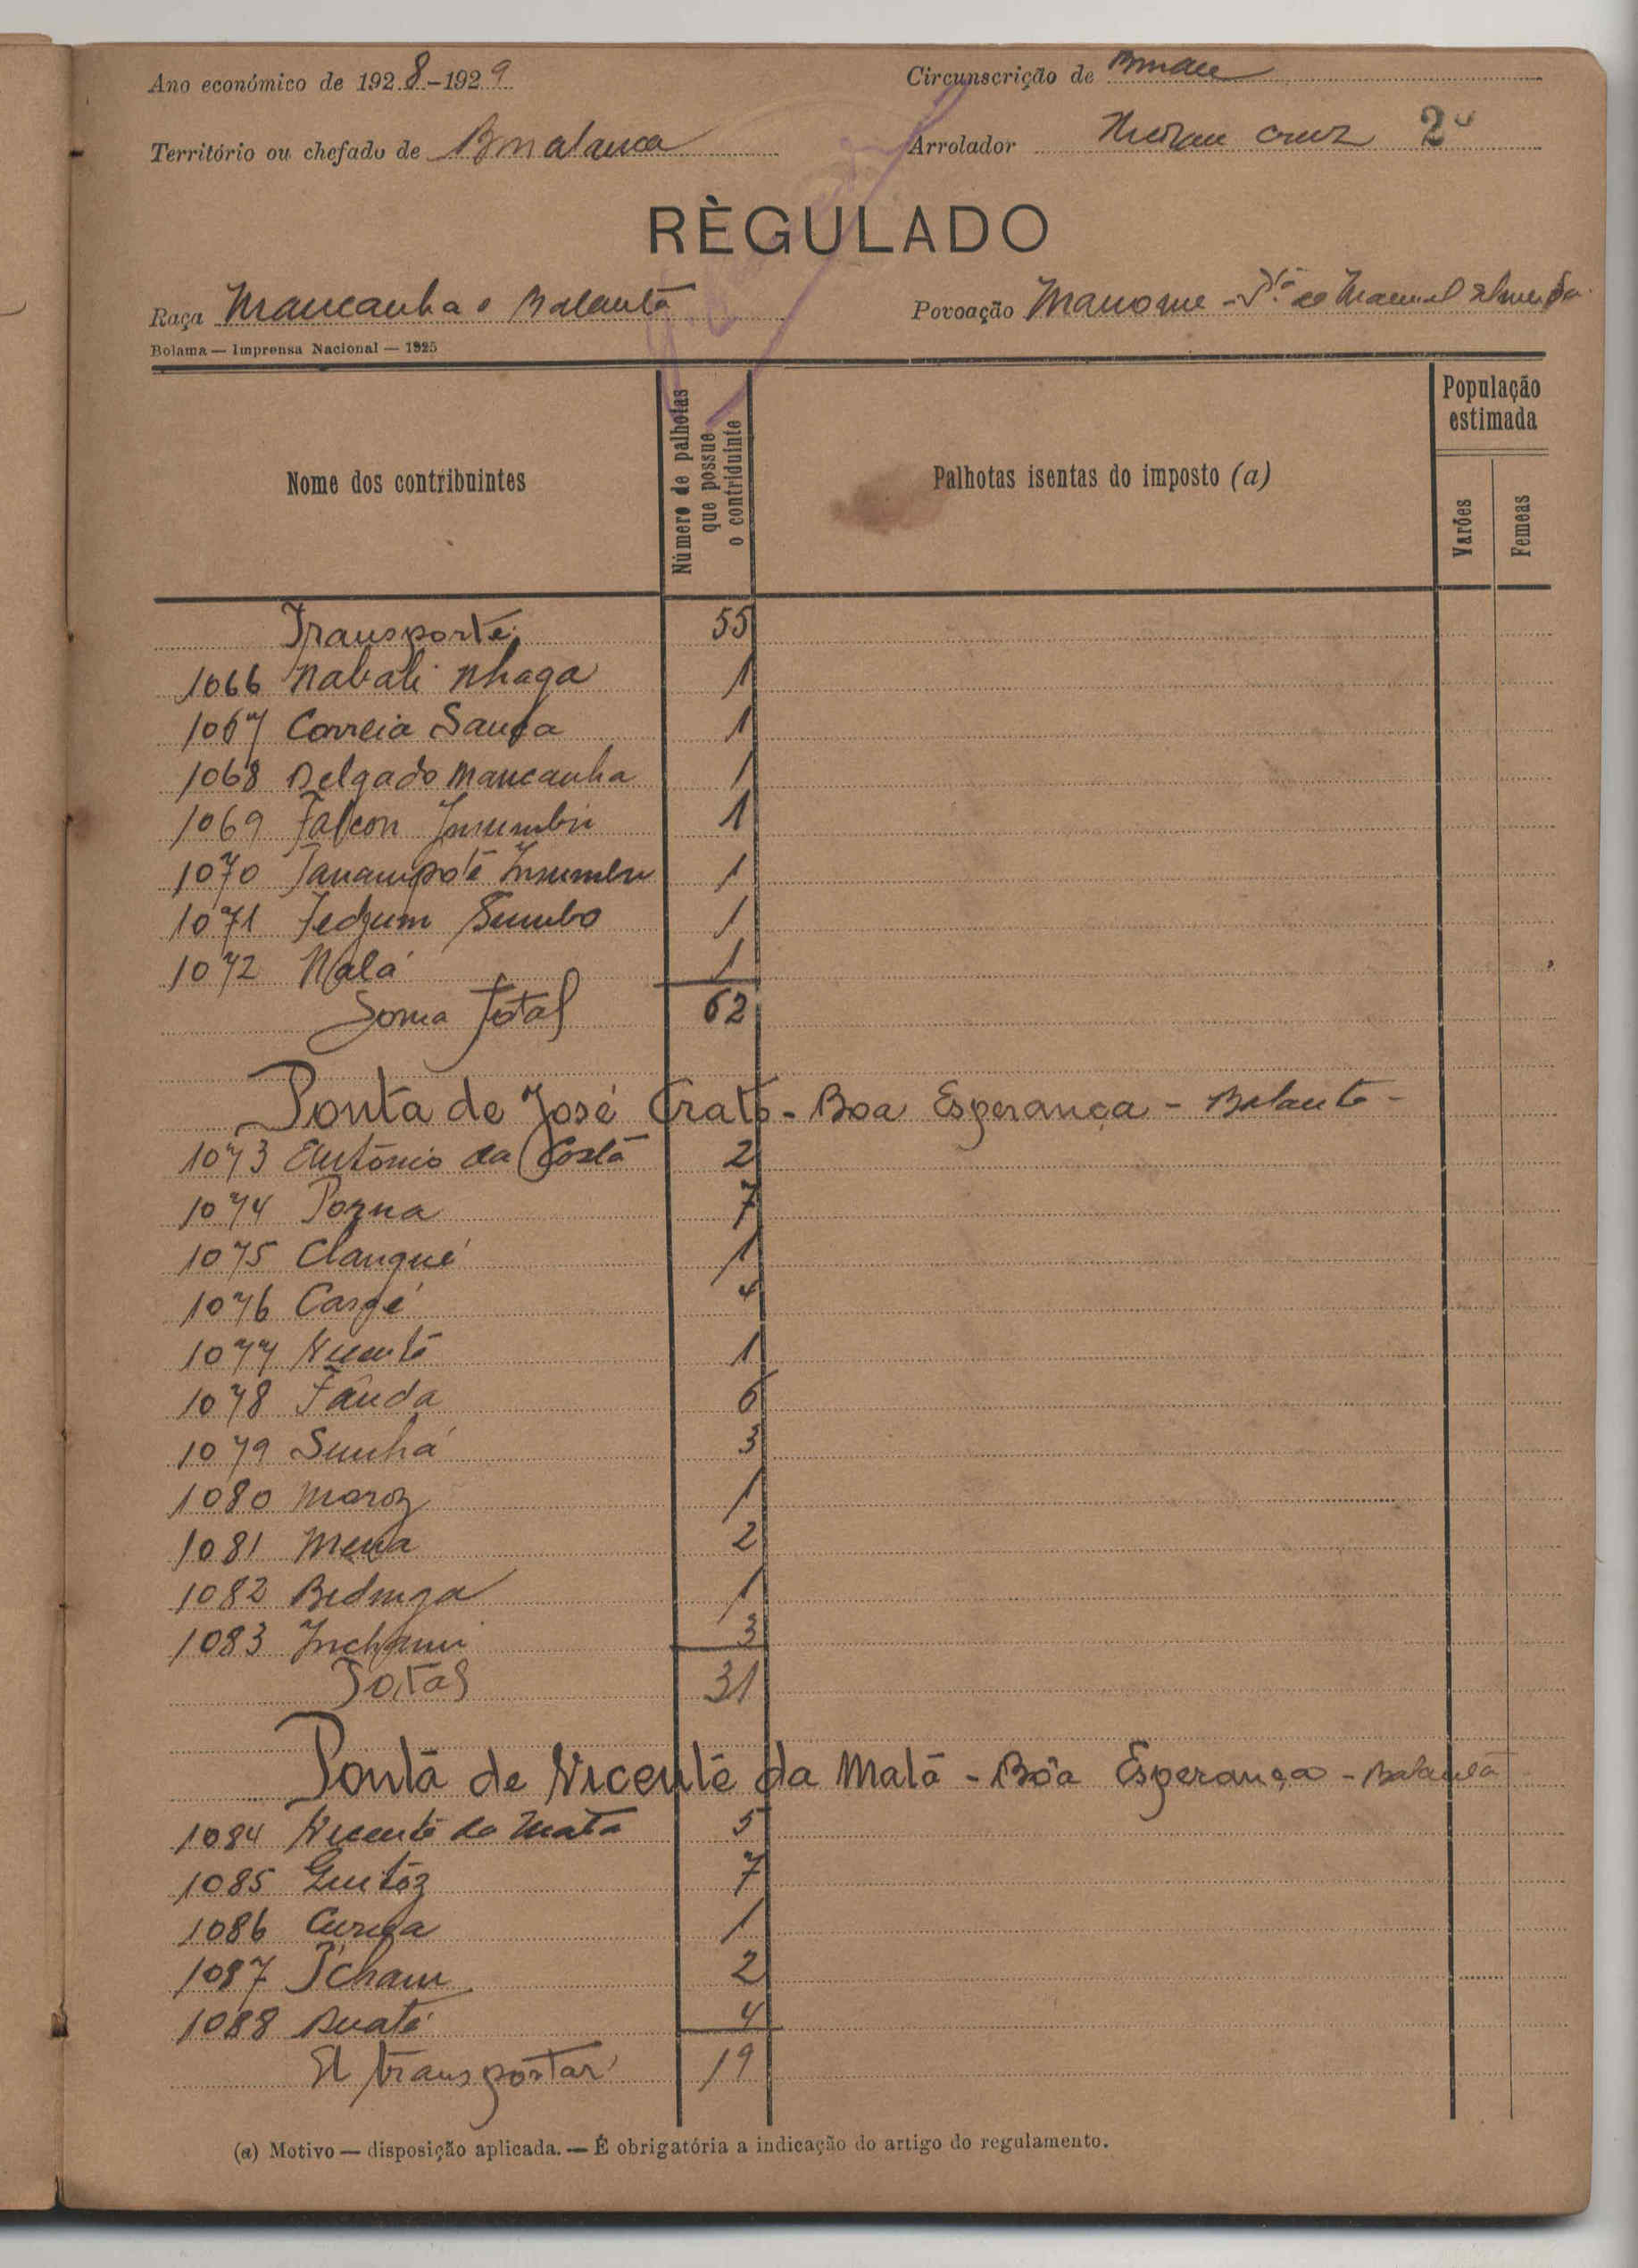 Ano económico de 1928-1929
Circunscrição de
Território ou chefado de
Arrolador Cruz 2º
RÈGULADO
Raça Mancanha e Balanta
Povoação Manome - Pta de Manuel Almeida
Bolama — Imprensa Nacional — 1925
Nome dos contribuintes
Número de palhotas que possue o contriduinte
Palhotas isentas do imposto (a)
População estimada
Varões
Femeas
Transporte 55
1066 Nabali Nhaga 1
1067 Correia Sanca 1
1068 Delgado Mancanha 1
1069 Falcon Insumbu 1
1070 Insumbu 1
1071 1
1072 Nalá 1
Soma Total 62
Ponta de José Crato - Boa Esperança - Balanta -
1073 António da Costa 2
1074 Pozna 7
1075 Clanqué 1
1076 4
1077 Vicente 1
1078 Fanda 6
1079 Sunhá 3
1080 Moroz 1
1081 Mena 2
1082 Bedinga 1
1083 3
Total 31
Ponta de Vicente da Mata - Bôa Esperança - Balanta
1084 Vicente da Mata 5
1085 7
1086 1
1087 2
1088 4
A transportar 19
(a) Motivo — disposição aplicada. — É obrigatória a indicação do artigo do regulamento.